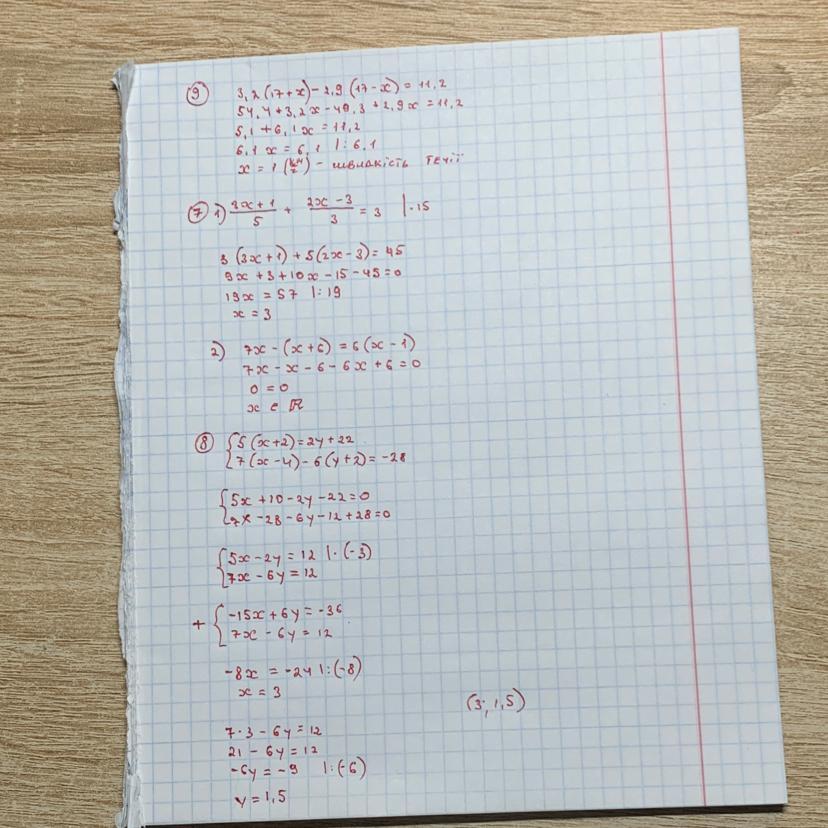 ⑨ 3,2(17+x)-2,9(17-x)=11,2
54,4+3,2x-49,3+2,9x=11,2
5,1+6,1x=11,2
6,1x=6,1 |:6,1
x=1 (км/г) - швидкість течії
⑦ 1) (3x+1)/5 + (2x-3)/3 = 3 |·15
3(3x+1)+5(2x-3)=45
9x+3+10x-15-45=0
19x=57 |:19
x=3
2) 7x-(x+6)=6(x-1)
7x-x-6-6x+6=0
0=0
x∈ℝ
⑧ {5(x+2)=2y+22
{7(x-4)-6(y+2)=-28
{5x+10-2y-22=0
{7x-28-6y-12+28=0
{5x-2y=12 |·(-3)
{7x-6y=12
+ {-15x+6y=-36
{7x-6y=12
-8x=-24 |:(-8)
x=3
(3; 1,5)
7·3-6y=12
21-6y=12
-6y=-9 |:(-6)
y=1,5